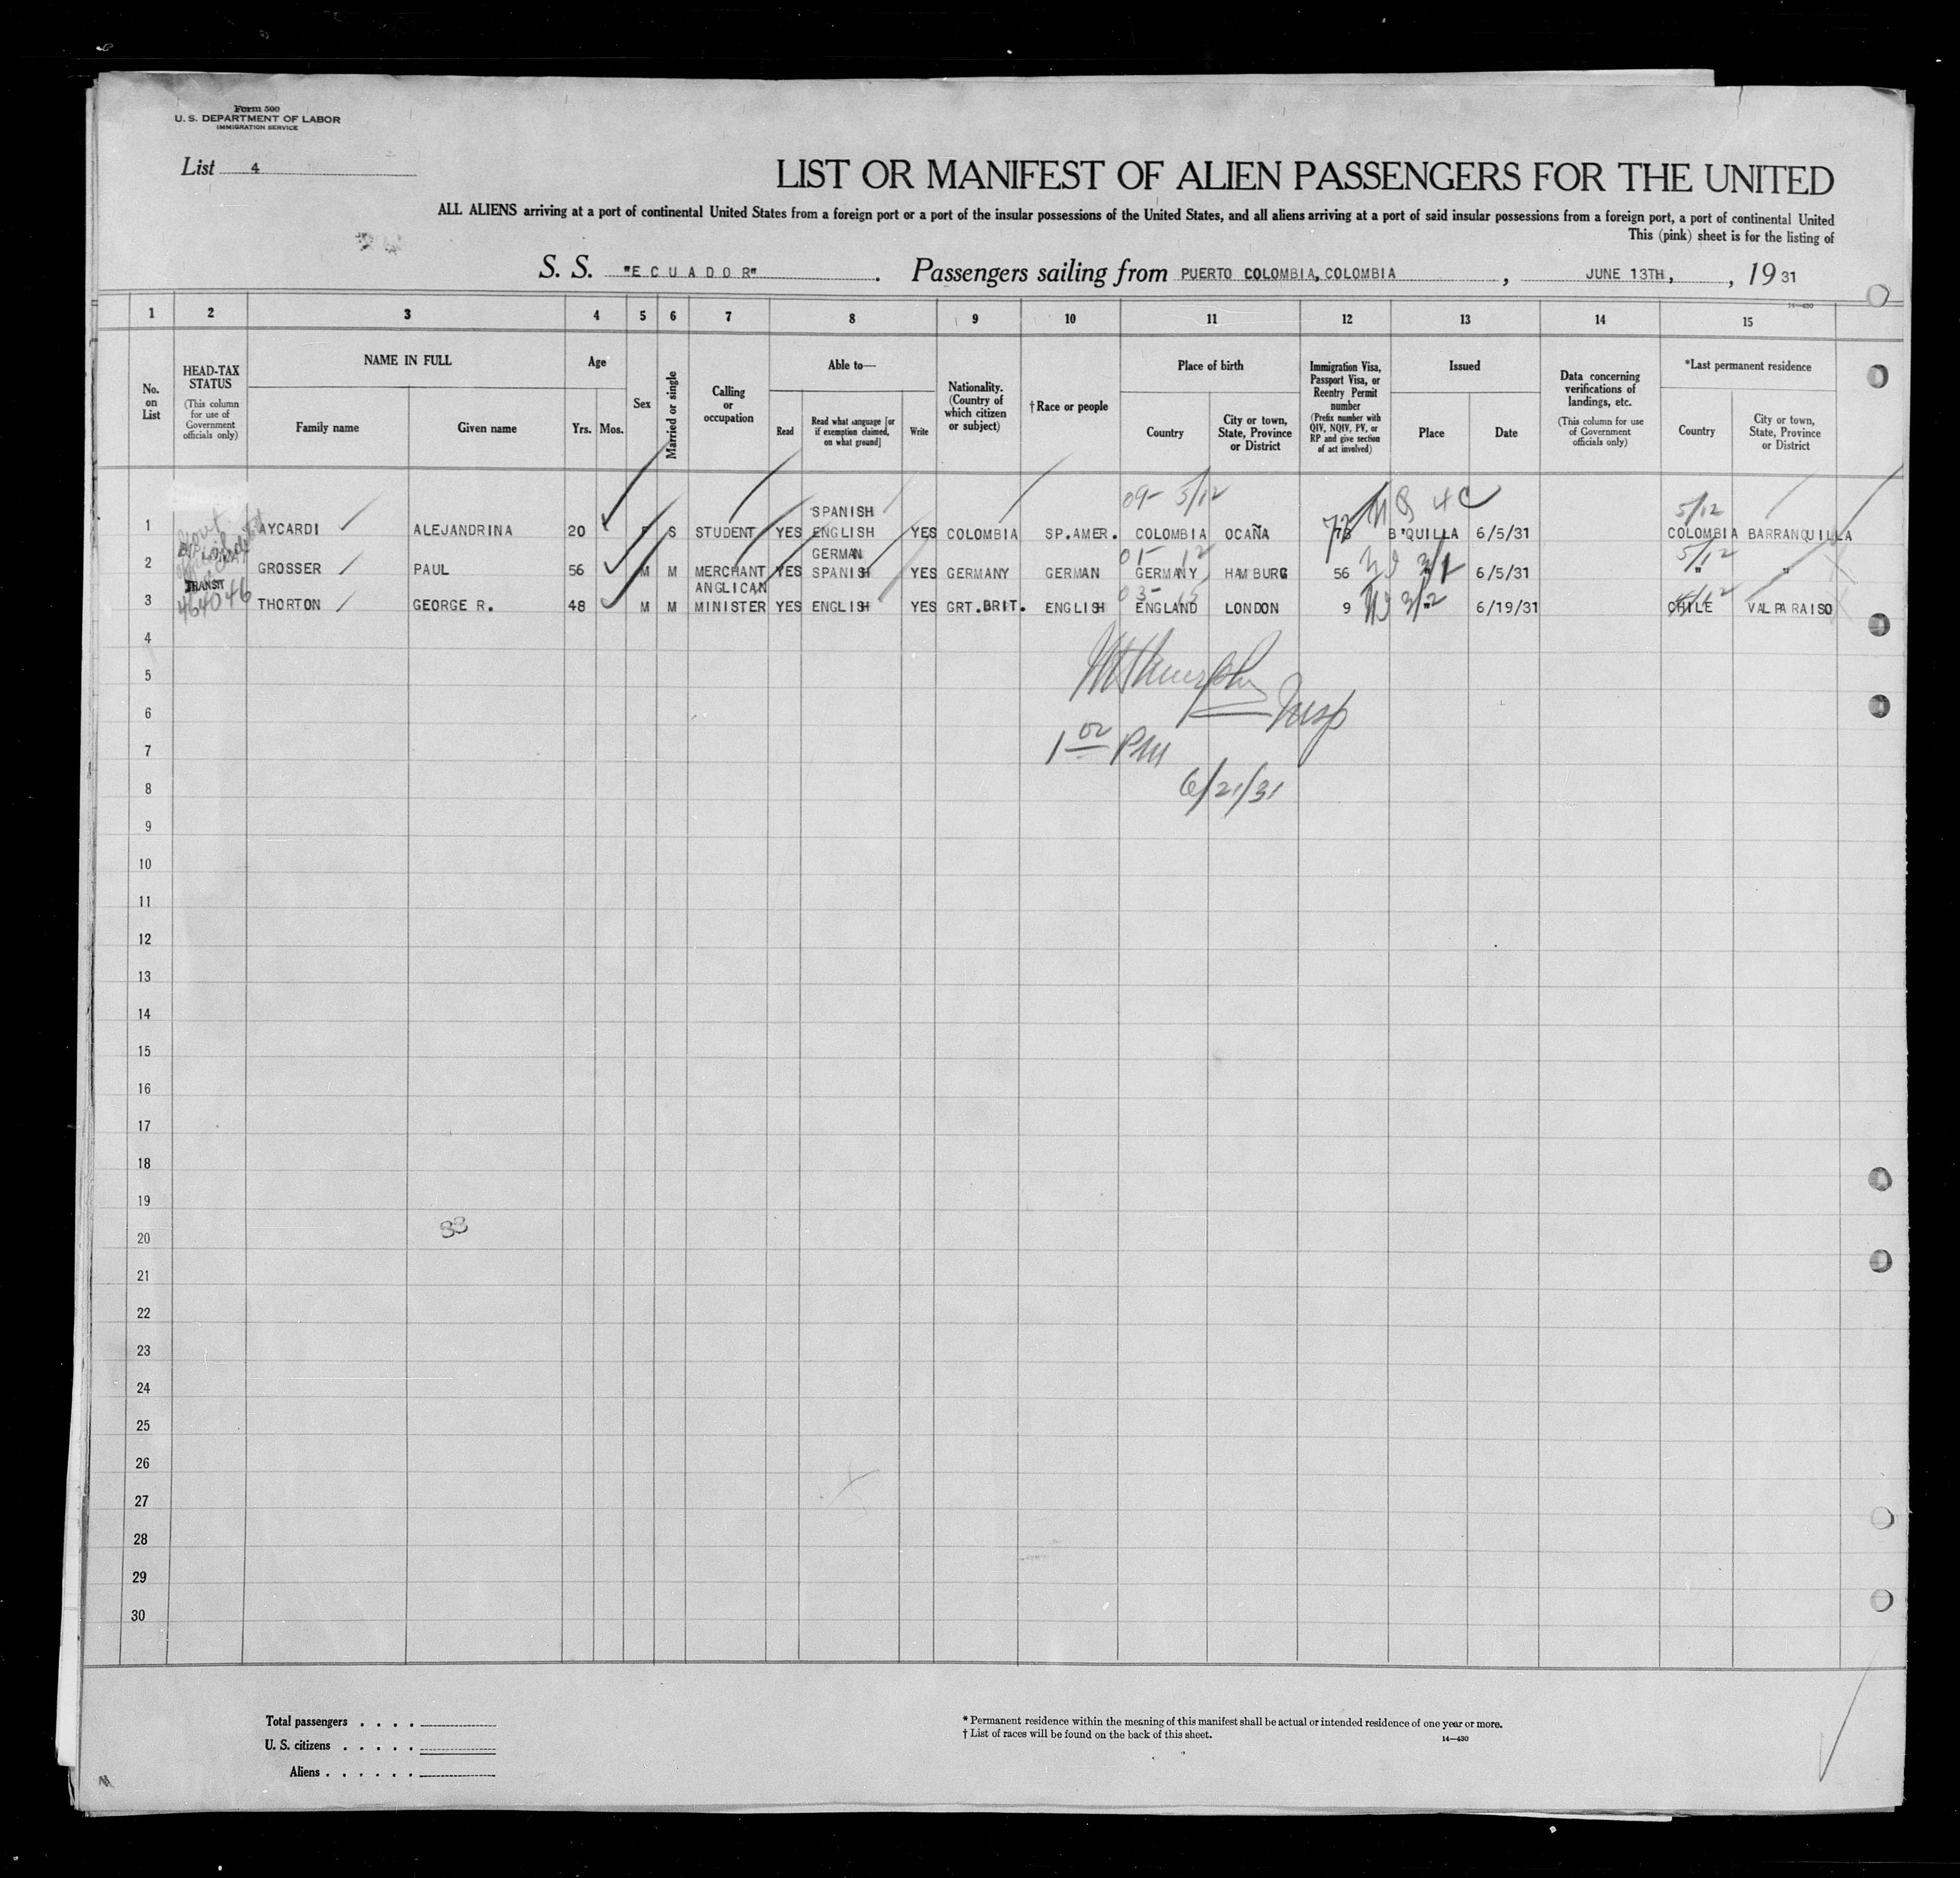 Form 500
U. S. DEPARTMENT OF LABOR
IMMIGRATION SERVICE
List 4
LIST OR MANIFEST OF ALIEN PASSENGERS FOR THE UNITED
ALL ALIENS arriving at a port of continental United States from a foreign port or a port of the insular possessions of the United States, and all aliens arriving at a port of said insular possessions from a foreign port, a port of continental United
This (pink) sheet is for the listing of
S. S. "ECUADOR" . Passengers sailing from PUERTO COLOMBIA, COLOMBIA , JUNE 13TH, , 19 31
14—430
1 2 3 4 5 6 7 8 9 10 11 12 13 14 15
No. on List
HEAD-TAX STATUS (This column for use of Government officials only)
NAME IN FULL
Family name
Given name
Age
Yrs. Mos.
Sex
Married or single
Calling or occupation
Able to—
Read
Read what language [or if exemption claimed, on what ground]
Write
Nationality. (Country of which citizen or subject)
†Race or people
Place of birth
Country
City or town, State, Province or District
Immigration Visa, Passport Visa, or Reentry Permit number (Prefix number with QIV, NQIV, PV, or RP and give section of act involved)
Issued
Place
Date
Data concerning verifications of landings, etc. (This column for use of Government officials only)
*Last permanent residence
Country
City or town, State, Province or District
09- 5/12 4C 5/12
SPANISH
1 AYCARDI ALEJANDRINA 20 S STUDENT YES ENGLISH YES COLOMBIA SP.AMER. COLOMBIA OCAÑA B'QUILLA 6/5/31 COLOMBIA BARRANQUILLA
GERMAN 01- 12 5/12
2 GROSSER PAUL 56 M M MERCHANT YES SPANISH YES GERMANY GERMAN GERMANY HAMBURG 56 3/1 " 6/5/31 " "
TRANSIT ANGLICAN 03-
3 464046 THORTON GEORGE R. 48 M M MINISTER YES ENGLISH YES GRT.BRIT. ENGLISH ENGLAND LONDON 9 3/2 " 6/19/31 CHILE VALPARAISO
4
5
Insp
6
1 00 PM
7
6/21/31
8
9
10
11
12
13
14
15
16
17
18
19
33
20
21
22
23
24
25
26
27
28
29
30
Total passengers . . . .
U. S. citizens . . . . .
Aliens . . . . . .
* Permanent residence within the meaning of this manifest shall be actual or intended residence of one year or more.
† List of races will be found on the back of this sheet.
14—430